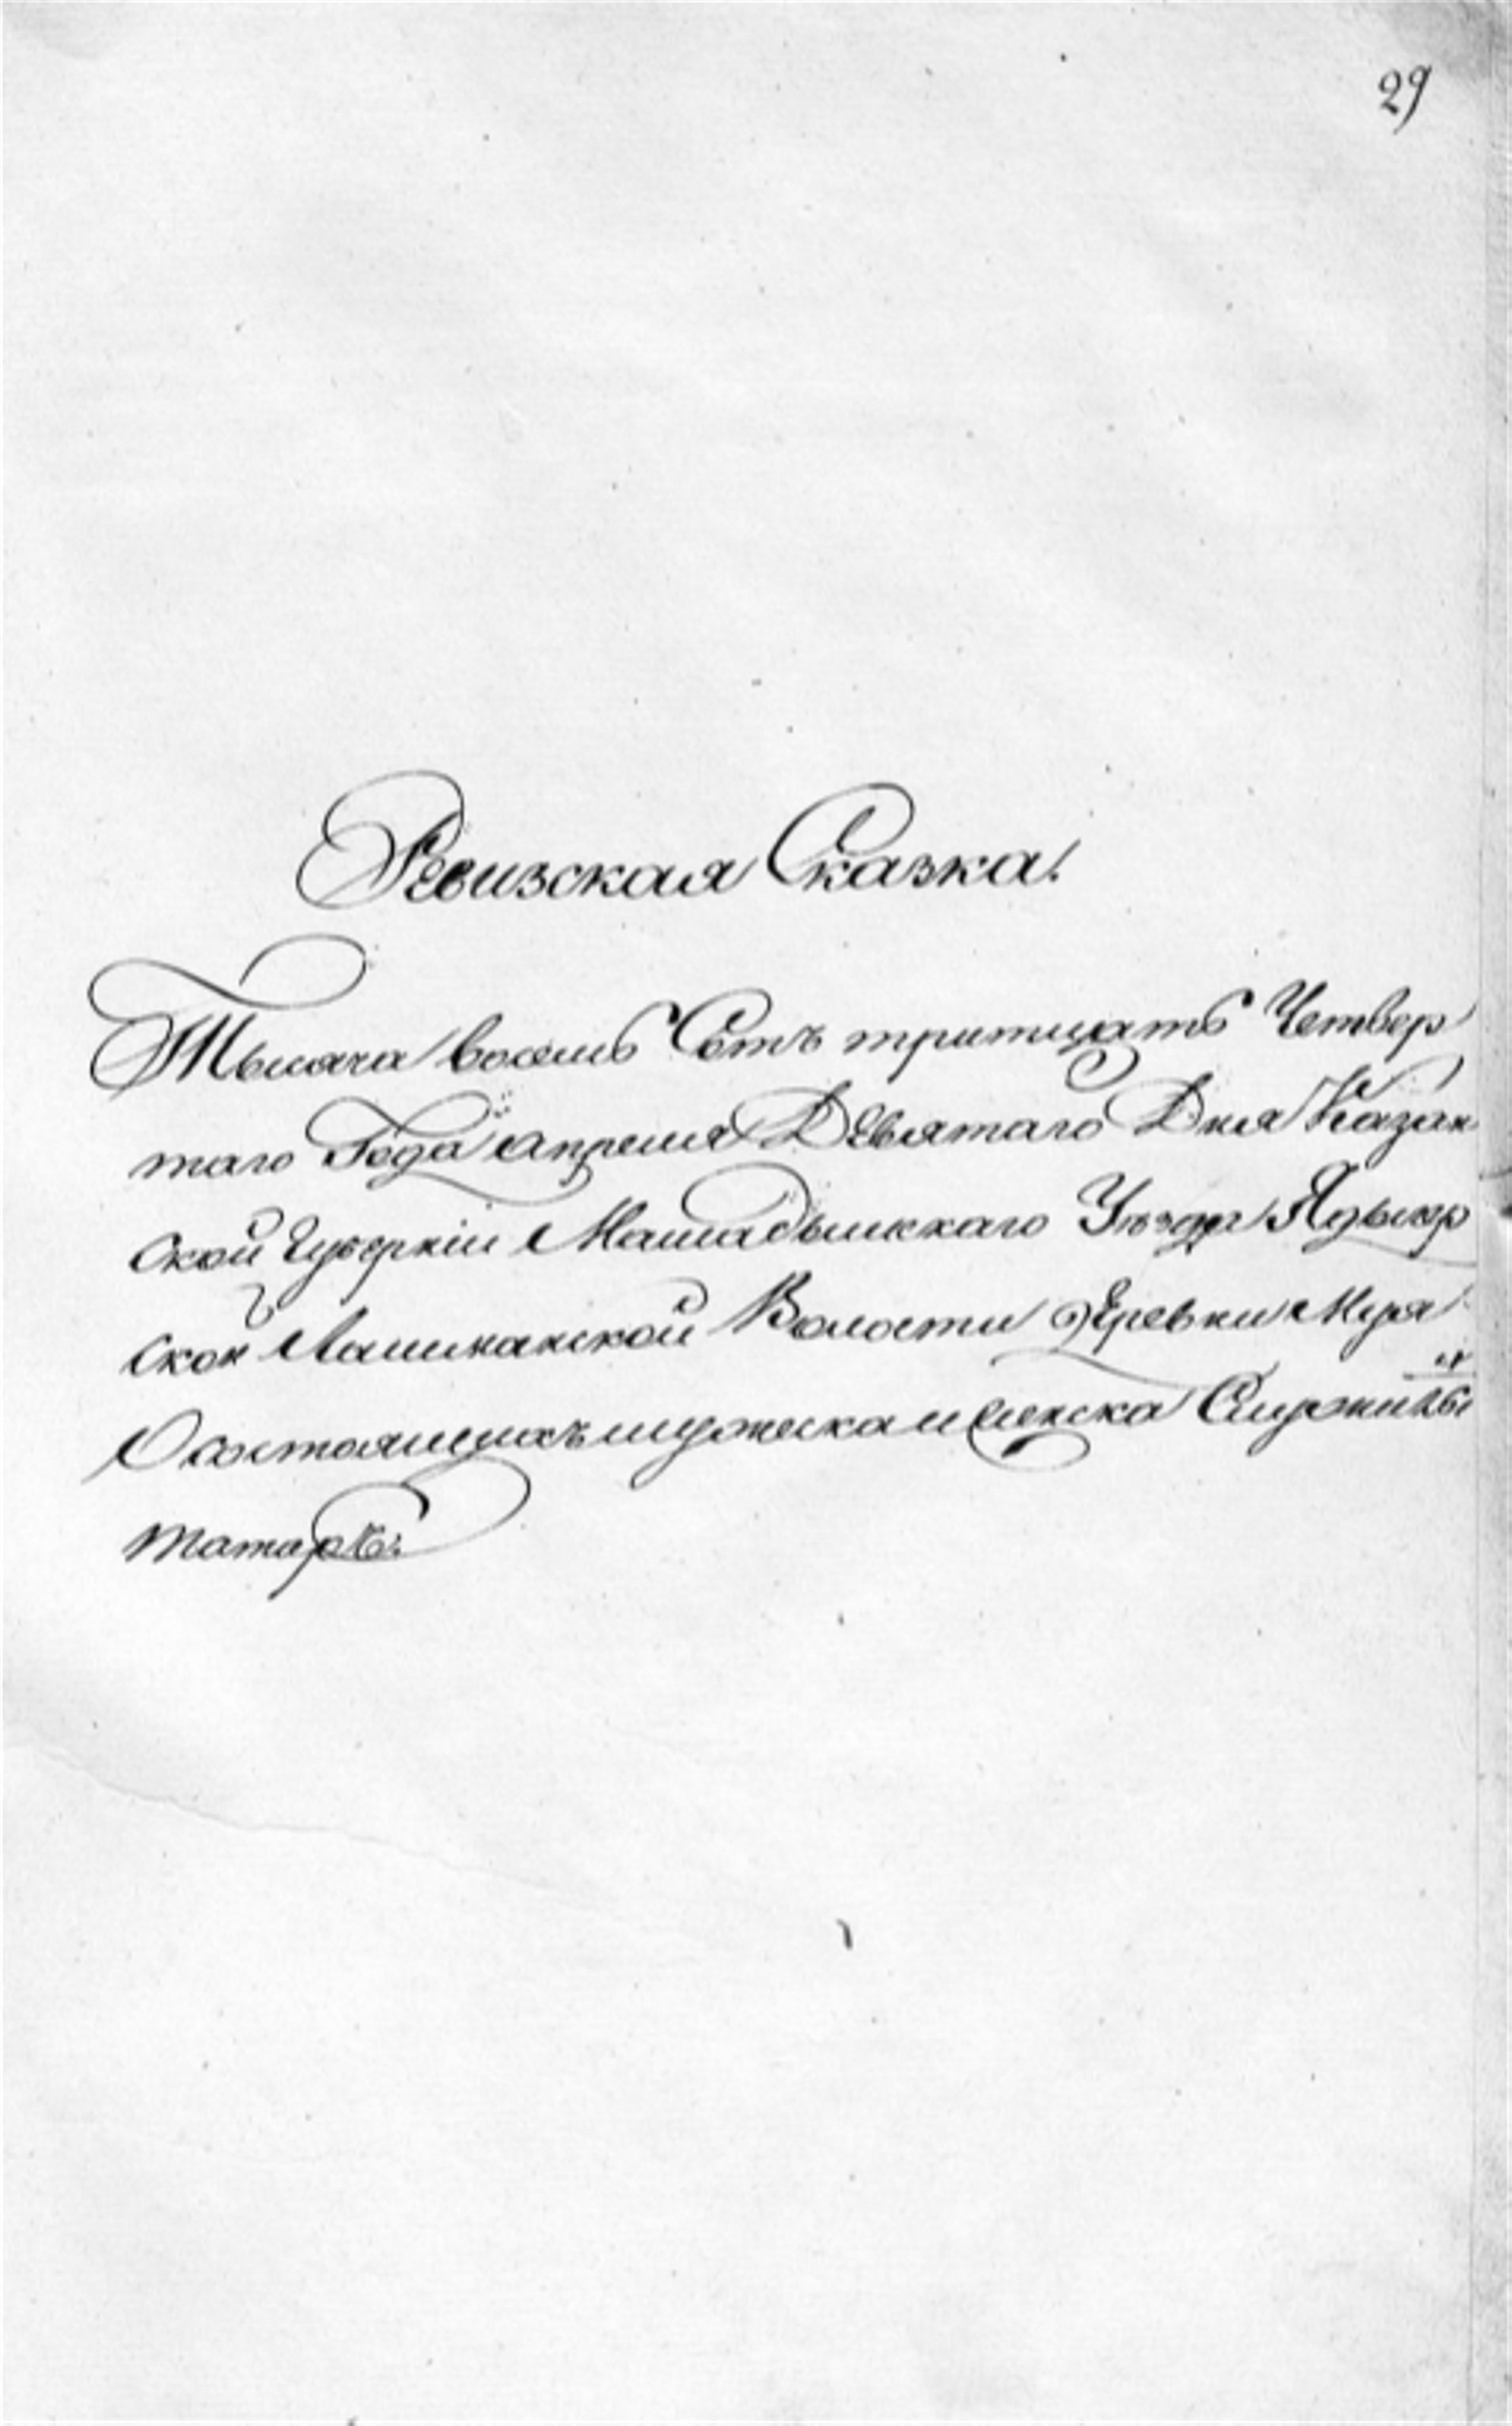 29
Ревизская Сказка.
Тысяча восемь Сотъ тритцать Четвер
таго Года апреля Девятаго Дня Казан
ской Губерніи Мамадышскаго Уѣзда Ядыгер
ской Лашманской Волости Деревни
О состоящихъ мужеска и женска
татаръ.